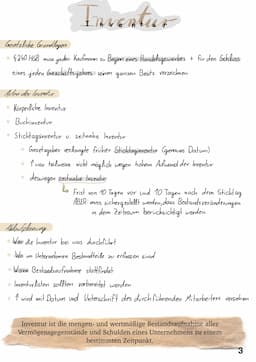 Inventur
Gesetzliche Grundlagen
§240 HGB muss jeder Kaufmann zu Beginn eines Handelsgewerbes + für den Schluss
eines jeden Geschäftsjahres seinen ganzen Besitz verzeichnen
Arten der Inventur
Körperliche Inventur
Buchinventur
Stichtagsinventur u. zeitnahe Inventur
Gesetzgeber verlangte früher Stichtagsinventur (genaues Datum)
war teilweise nicht möglich wegen hohem Aufwand der Inventur
deswegen zeitnahe Inventur
Frist von 10 Tagen vor und 10 Tagen nach dem Stichtag
ABER: muss sichergestellt werden, dass Bestandsveränderungen
in dem Zeitraum berücksichtigt werden
Wer die Inventur bei was durchführt
Wo im Unternehmen Bestandteile zu erfassen sind
Wann Bestandsaufnahme stattfindet
Inventurlisten sollten vorbereitet werden
wird mit Datum und Unterschrift des durchführenden Mitarbeiters versehen
Inventur ist die mengen- und wertmäßige Bestandsaufnahme aller
Vermögensgegenstände und Schulden eines Unternehmens zu einem
bestimmten Zeitpunkt.
3